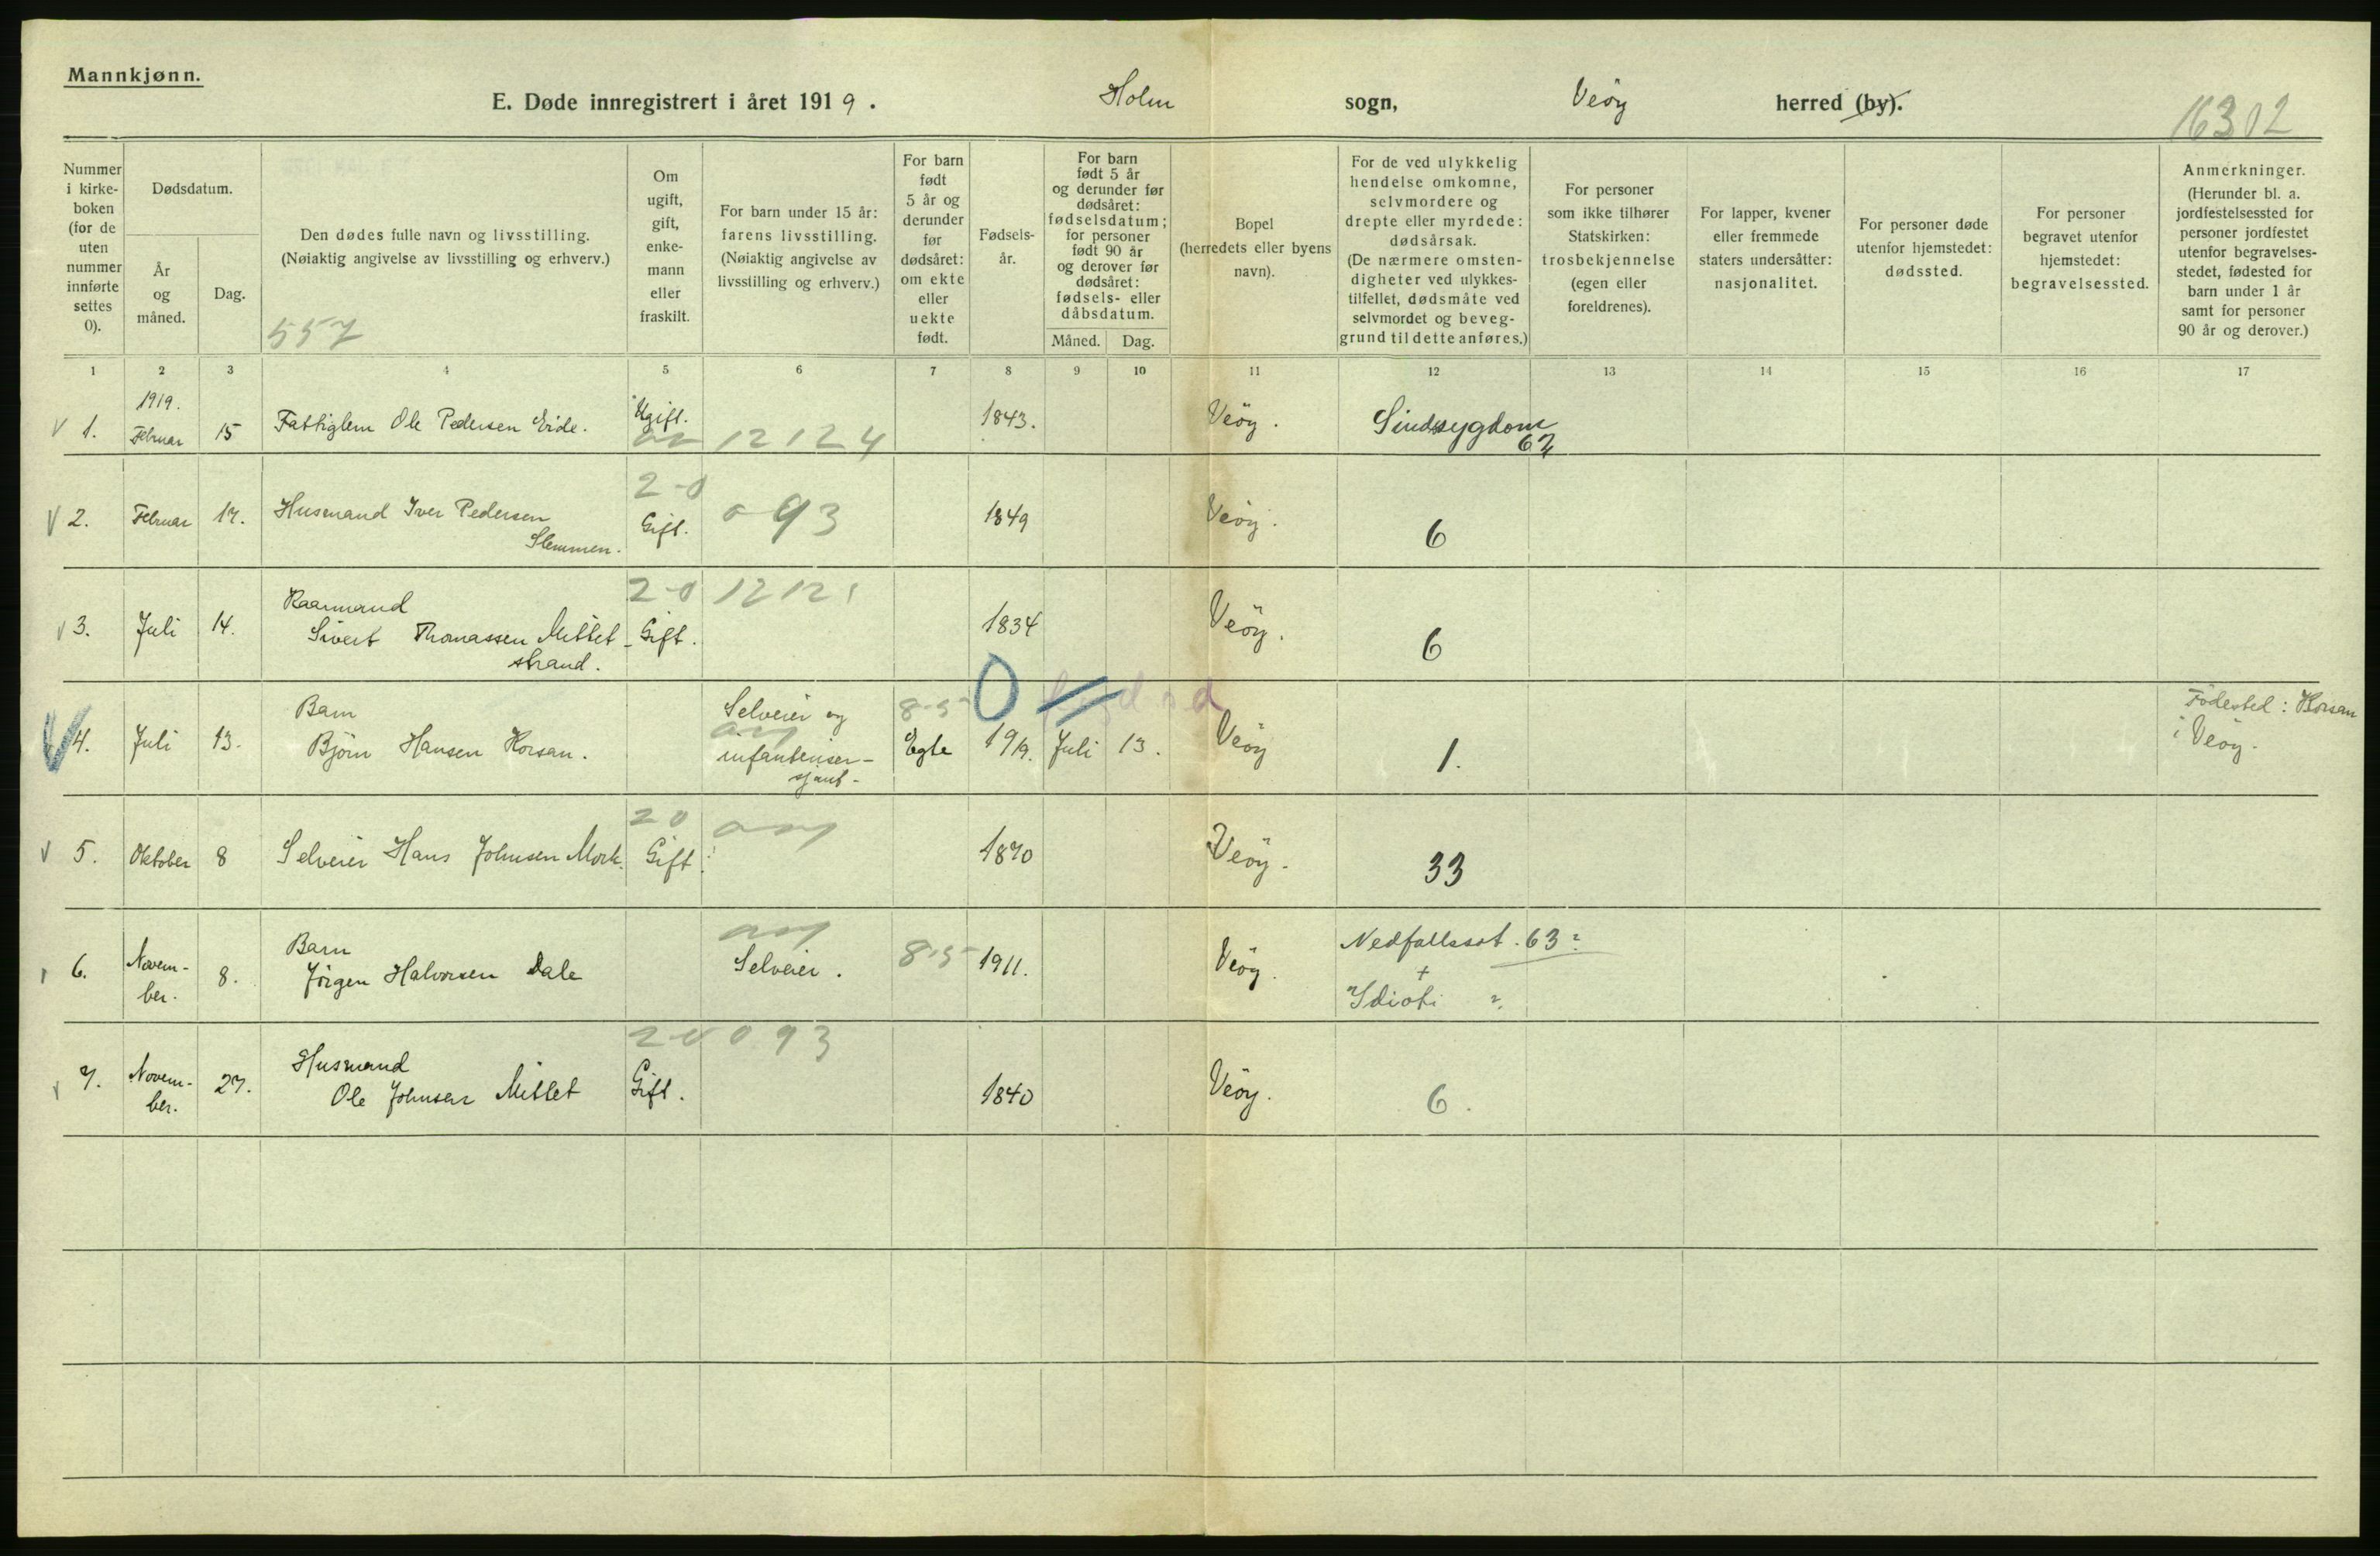 Mannkjønn.
E. Døde innregistrert i året 1919. Holm sogn, Veöy herred (by).
16302
Nummer i kirke- boken (for de uten nummer innførte settes 0).
Dødsdatum.
År og måned.
Dag.
Den dødes fulle navn og livsstilling. (Nøiaktig angivelse av livsstilling og erhverv.)
557
Om ugift, gift, enke- mann eller fraskilt.
For barn under 15 år: farens livsstilling. (Nøiaktig angivelse av livsstilling og erhverv.)
For barn født 5 år og derunder før dødsåret: om ekte eller uekte født.
Fødsels- år.
For barn født 5 år og derunder før dødsåret: fødselsdatum; for personer født 90 år og derover før dødsåret: fødsels- eller dåbsdatum.
Måned. Dag.
Bopel (herredets eller byens navn).
For de ved ulykkelig hendelse omkomne, selvmordere og drepte eller myrdede: dødsårsak. (De nærmere omsten- digheter ved ulykkes- tilfellet, dødsmåte ved selvmordet og beveg- grund til dette anføres.)
For personer som ikke tilhører Statskirken: trosbekjennelse (egen eller foreldrenes).
For lapper, kvener eller fremmede staters undersåtter: nasjonalitet.
For personer døde utenfor hjemstedet: dødssted.
For personer begravet utenfor hjemstedet: begravelsessted.
Anmerkninger. (Herunder bl. a. jordfestelsessted for personer jordfestet utenfor begravelses- stedet, fødested for barn under 1 år samt for personer 90 år og derover.)
1 2 3 4 5 6 7 8 9 10 11 12 13 14 15 16 17
1919.
1. Februar 15 Fattiglem Ole Pedersen Eide. Ugift. 12124 1843. Veöy. Sindssygdom
62
2-0
2. Februar 17. Husmand Iver Pedersen Gift. 093 1849 Veöy. 6
Slemmen.
2-0 1212
Raamand
3. Juli 14. Sivert Thomassen Mittet- Gift. 1834 Veöy. 6
strand.
Barn Selveier og 8-5 0 Födested: Horsan
4. Juli 13. Björn Hansen Horsan. infanteriser- Egte 1919. Juli 13. Veöy 1. i Veöy.
sjant-
20
5. Oktober 8 Selveier Hans Johnsen Mork. Gift. 1870 Veöy. 33
Barn Nedfallssot. 63?
6. Novem- 8. Jörgen Halvorsen Dale Selveier. 8-5 1911. Veöy. +
ber. Idioti ?
2-0 093
Husmand
7. Novem- 27. Ole Johnsen Mittet Gift. 1840 Veöy. 6.
ber.